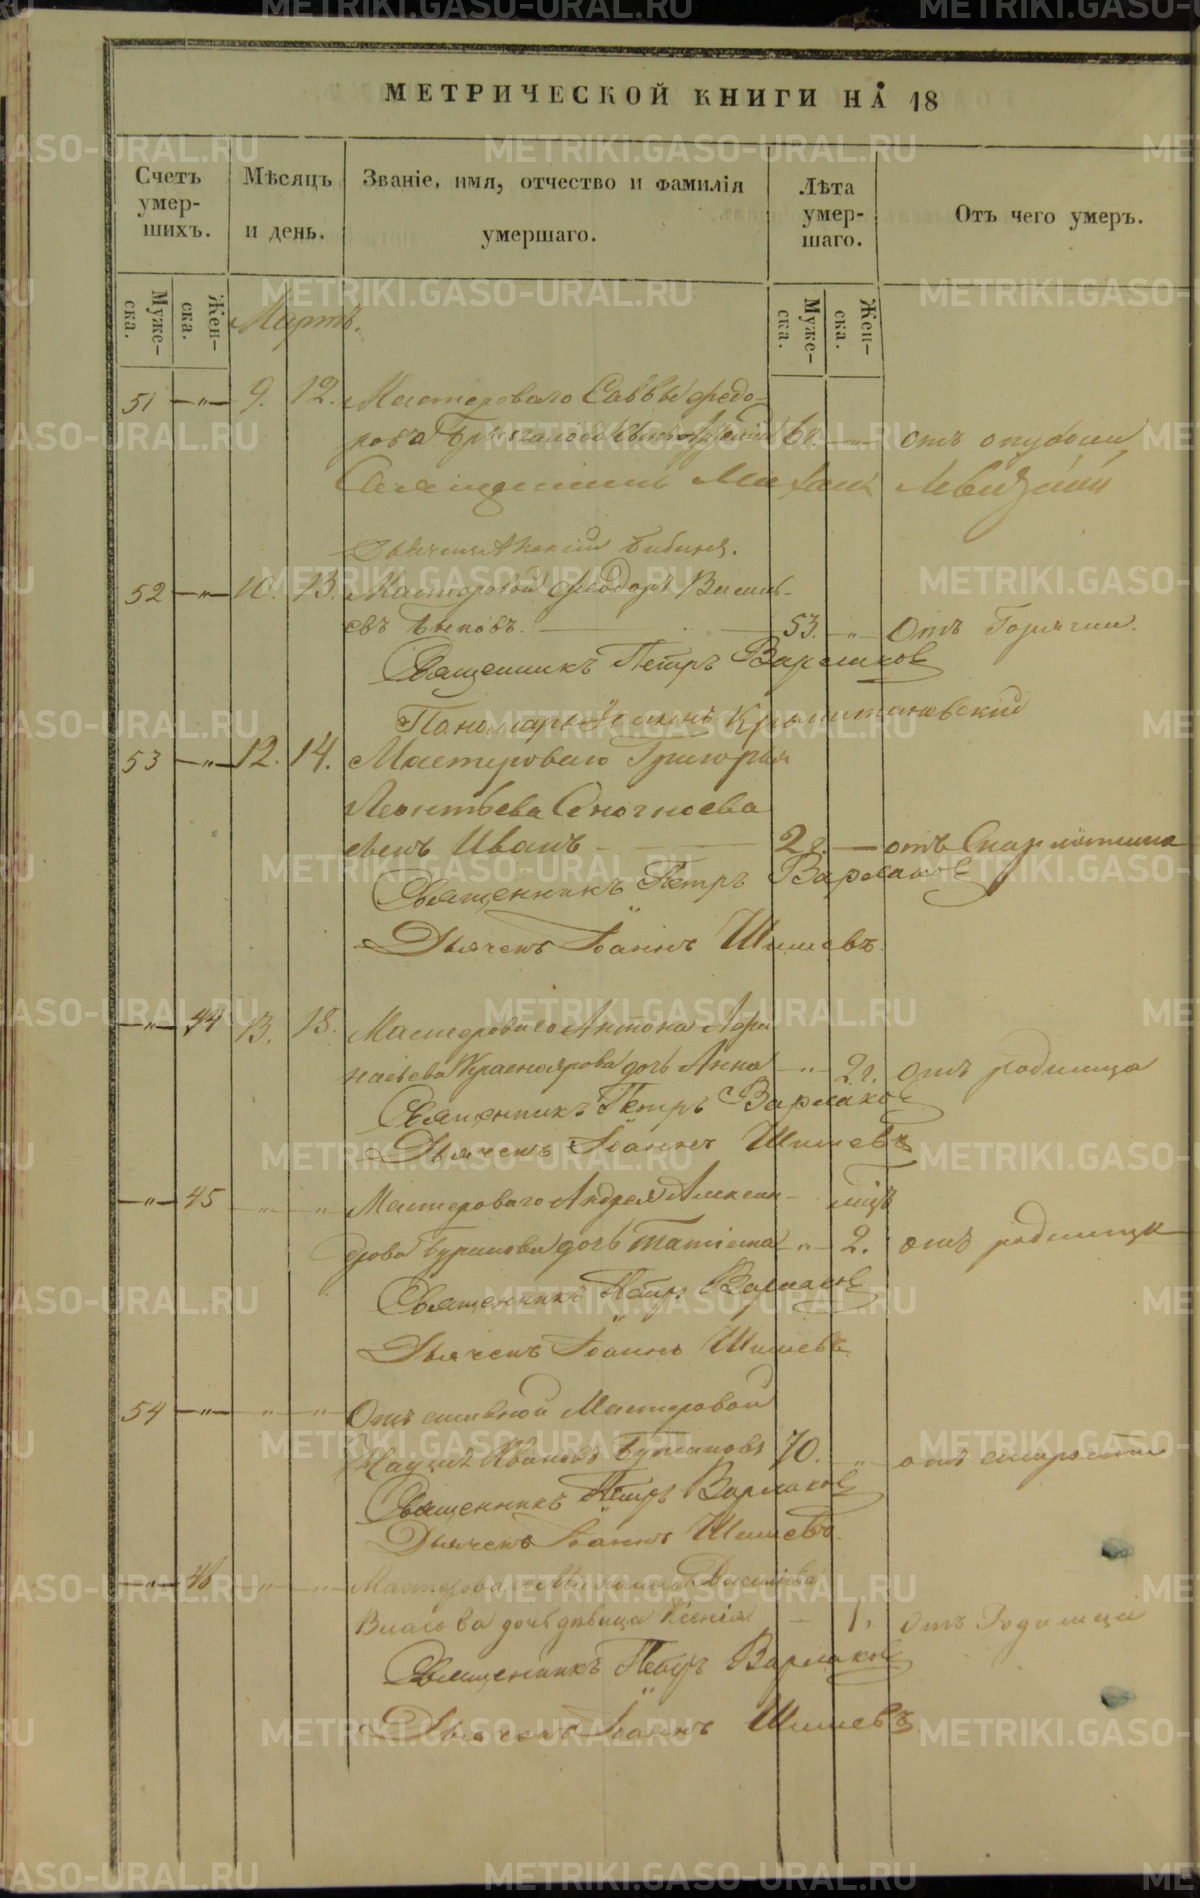 МЕТРИЧЕСКОЙ КНИГИ НА 18
Счетъ умер-шихъ.
Мѣсяцъ и день.
Званіе, имя, отчество и фамилія умершаго.
Лѣта умер-шаго.
Отъ чего умеръ.
Муже-ска.
Жен-ска.
Муже-ска.
Жен-ска.
Мартъ.
51 — „ — 9. 12. Мастероваго Саввы Федо-
рова сынъ — отъ опухоли
Священникъ Михаил
Дьячекъ Алексій Бибинъ.
52 — „ — 10. 13. Мастеровой Феодоръ Василь-
евъ Быковъ. — 53. „ — Отъ Горячки.
Священникъ Петръ Варлаков
Пономарь Іоаннъ
53 — „ — 12. 14. Мастероваго Григорья
Леонтьева
сынъ Иванъ — 2 г. — отъ Скарлатина
Священникъ Петръ Варлаков
Дьячекъ Іоаннъ Шишевъ.
— „ — 44 13. 15. Мастероваго Антона Афа
насьева Красноярова дочь Анна — „ — 2 г. отъ родимца
Священникъ Петръ Варлаков
Дьячекъ Іоаннъ Шишевъ
— „ — 45 — „ — „ — Мастероваго Андрея Алексан-
дрова дочь Татіана — „ — 2. отъ родимца
Священникъ Петръ Варлаков
Дьячекъ Іоаннъ Шишевъ.
54 — „ — „ — „ — Отставной Мастеровой
Наумъ Ивановъ 70. „ отъ старости
Священникъ Петръ Варлаков
Дьячекъ Іоаннъ Шишевъ.
— „ — 46 — „ — „ — Мастероваго
Власова дочь дѣвица Ксенія — 1. отъ Родимца
Священникъ Петръ Варлаков
Дьячекъ Іоаннъ Шишевъ
METRIKI.GASO-URAL.RU